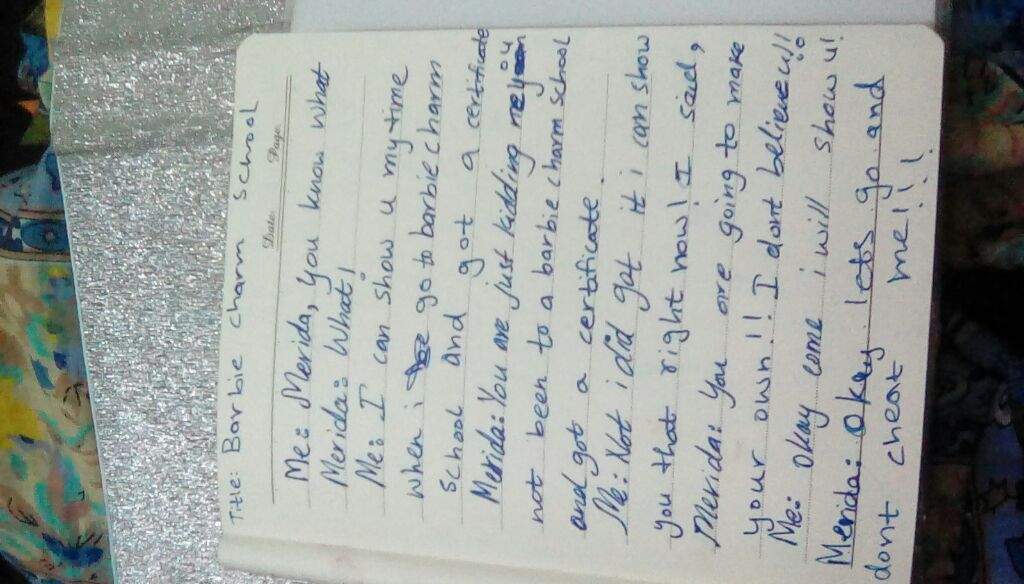 Title: Barbie charm school
Date: Page:
Me: Merida, you know what
Merida: What!
Me: I can show u my time
when i go to barbie charm
school and got a certificate
Merida: You are just kidding me you
not been to a barbie charm school
and got a certificate.
Me: Not i did got it i can show
you that right now! I said,
Merida: You are going to make
your own!! I dont believe u!!
Me: Okay come i will show u!
Merida: Okay. lets go and
dont cheat me!!!